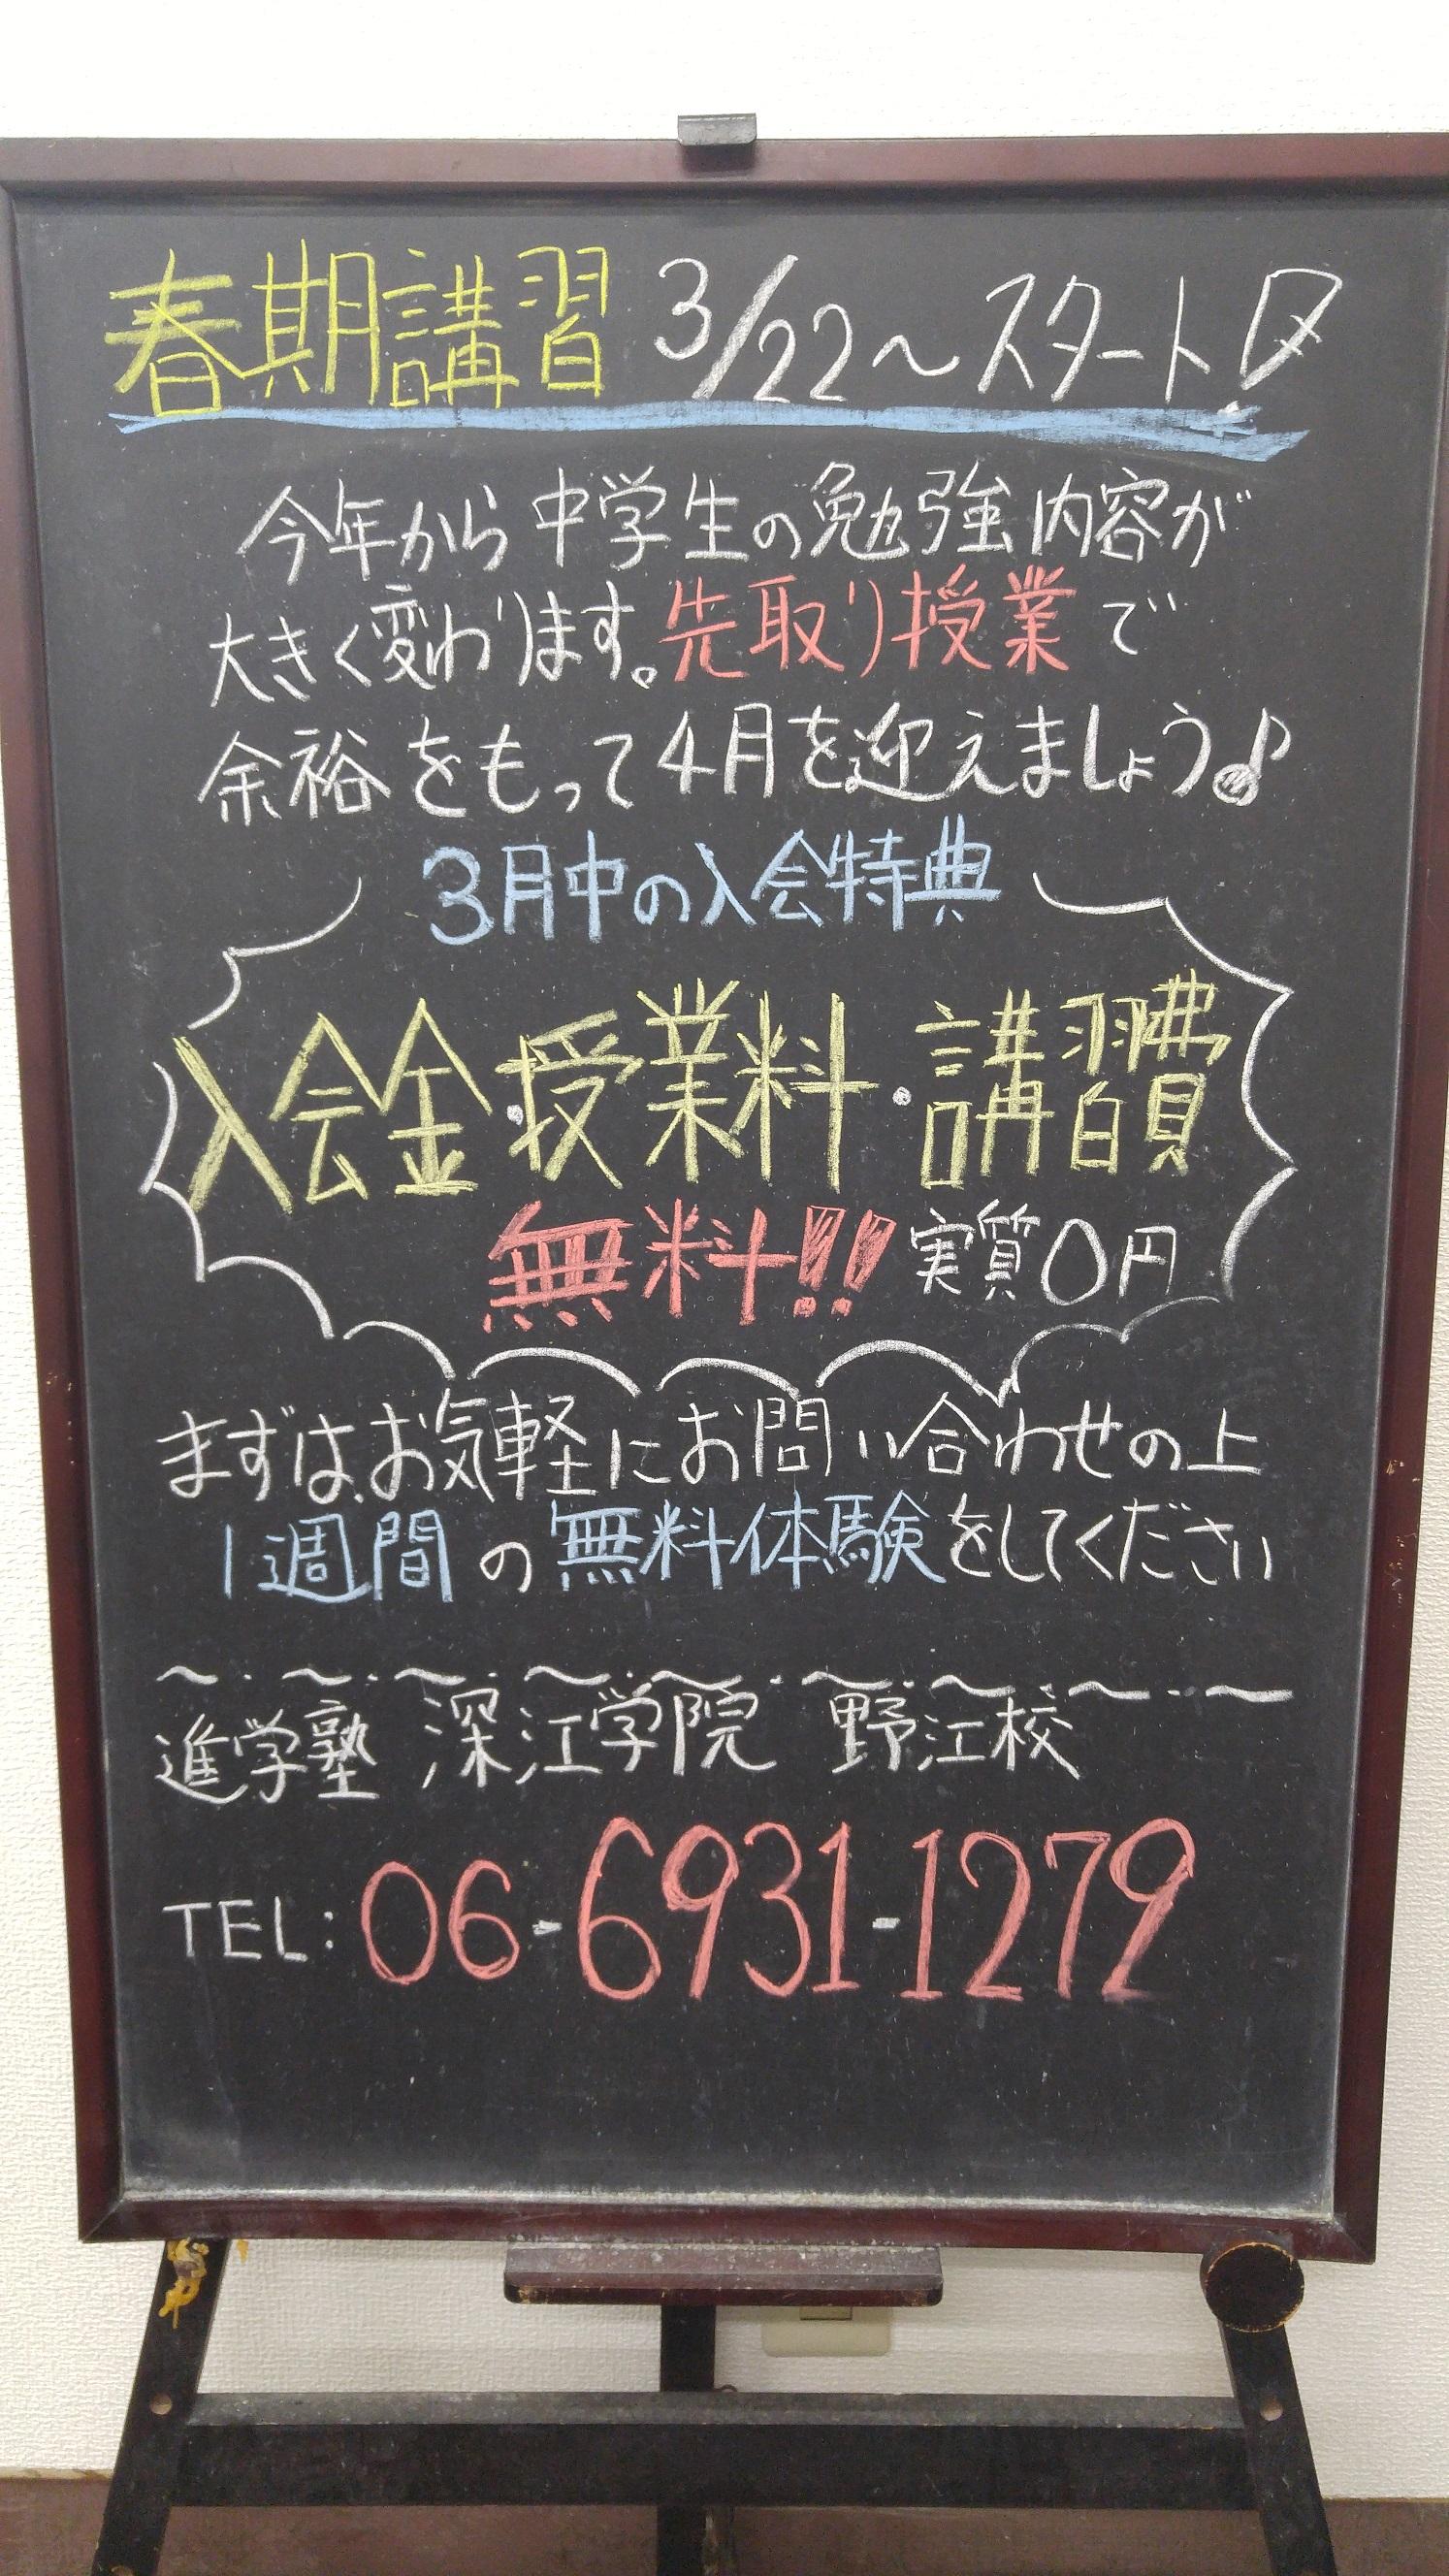 春期講習 3/22〜スタート!
今年から中学生の勉強内容が
大きく変わります。先取り授業で
余裕をもって4月を迎えましょう♪
3月中の入会特典
入会金・授業料・講習費
無料!! 実質0円
まずは、お気軽にお問い合わせの上
1週間の無料体験をしてください
〜・〜・〜・〜・〜・〜・〜・〜・〜
進学塾 深江学院 野江校
TEL:06-6931-1279